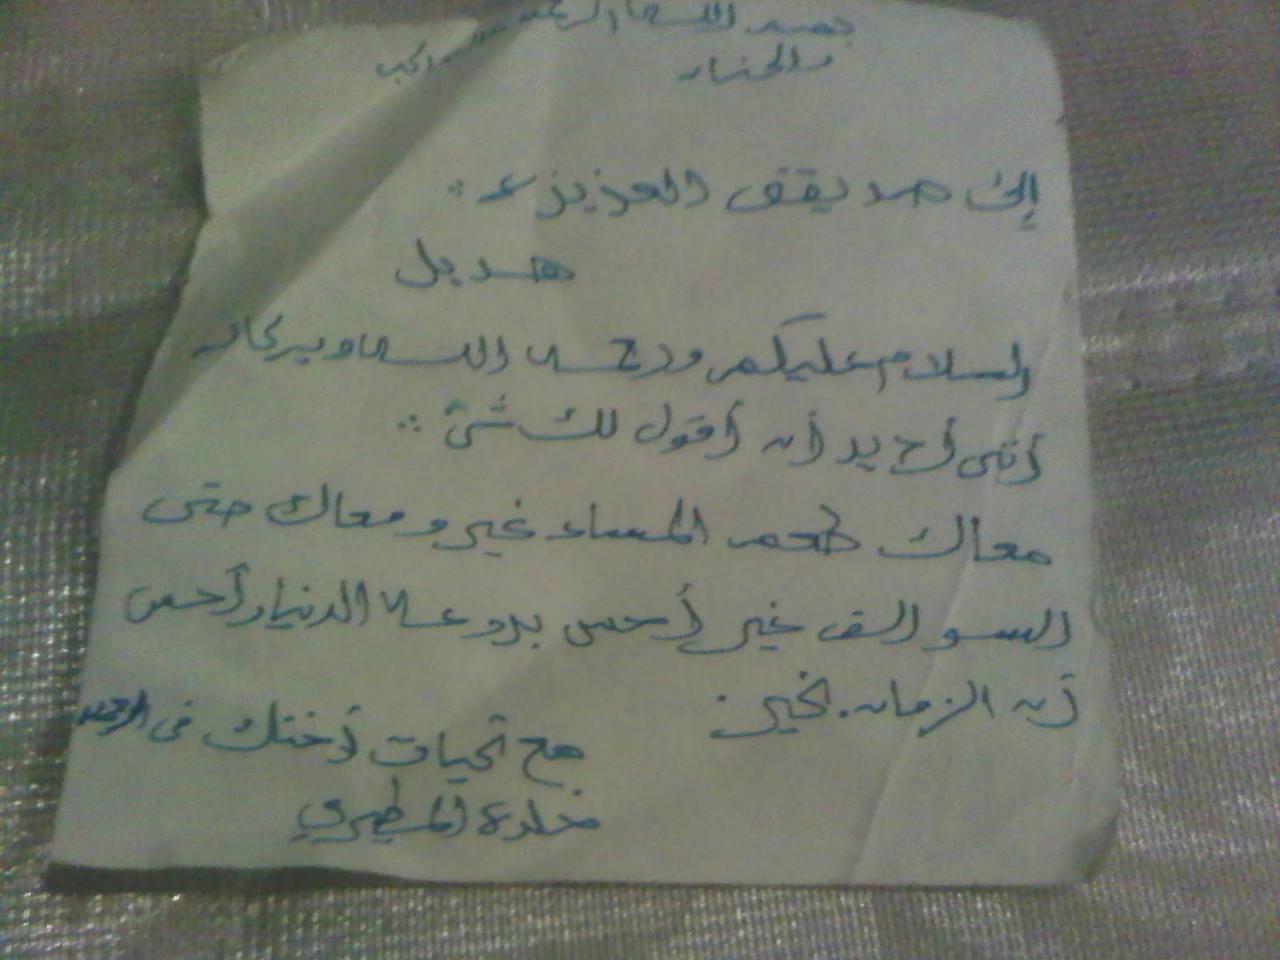 بسم الله الرحمن
والحنان والحب
إلى صديقتي العزيزة:
هديل
السلام عليكم ورحمة الله وبركاته
أنني أريد أن أقول لك شئ:
معاك طعم المساء غير ومعاك حتى
السوالف غير أحس بروعة الدنيا وأحس
أن الزمان بخير
مع تحيات أختك في
خلدة المطيري